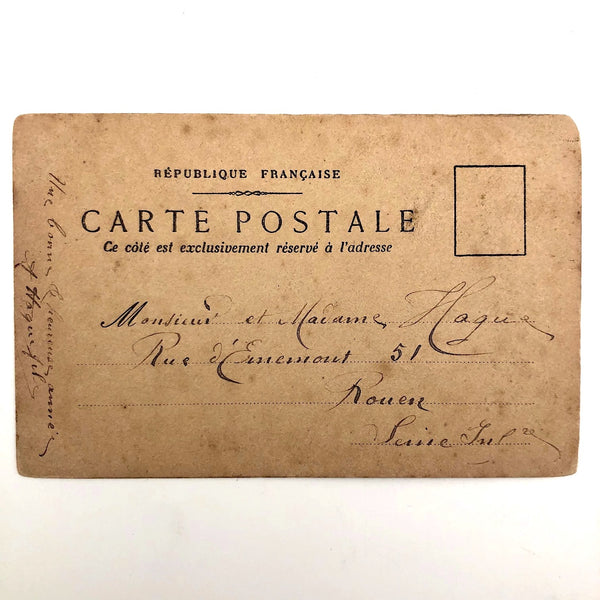 RÉPUBLIQUE FRANÇAISE
CARTE POSTALE
Ce côté est exclusivement réservé à l'adresse
Monsieur et Madame Hague
Rue d'Ernemont 51
Rouen
Seine Infre
Une bonne & heureuse année